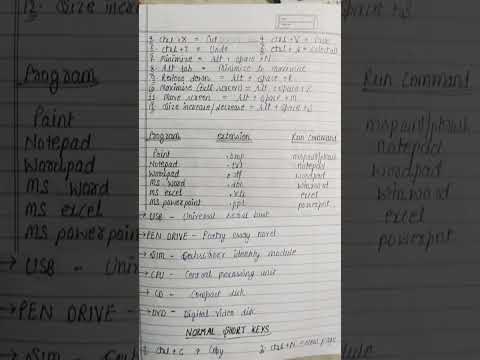 3. Ctrl + X = Cut 4. Ctrl + V = Paste
5. Ctrl + Z = Undo 6. Ctrl + A = select all
7. Minimise = Alt + space + N
8. Alt tab = Minimize to maximize
9. Restore down = Alt + space + R
10. Maximise (full screen) = Alt + space + X
11. Move screen = Alt + space + M
12. Size increase/decrease = Alt + space + S
Program extension Run Command
Paint .bmp mspaint/pbrush
Notepad .txt notepad
Wordpad .rtf wordpad
MS Word .doc winword
MS excel .xls excel
MS powerpoint .ppt powerpnt
→ USB - Universal serial
→ PEN DRIVE -
→ Sim - Subscriber identity module
→ CPU - Central processing unit
→ CD - Compact disk
→ DVD - Digital video disk
NORMAL SHORT KEYS
1. Ctrl + C → Copy 2. Ctrl + N =
12. Size increase
Program
Paint
Notepad
Wordpad
MS Word
MS excel
MS powerpoint
→ USB - Uni
PEN DRIVE -
space + S
Run Command
mspaint/pbrush
notepad
wordpad
winword
excel
powerpnt